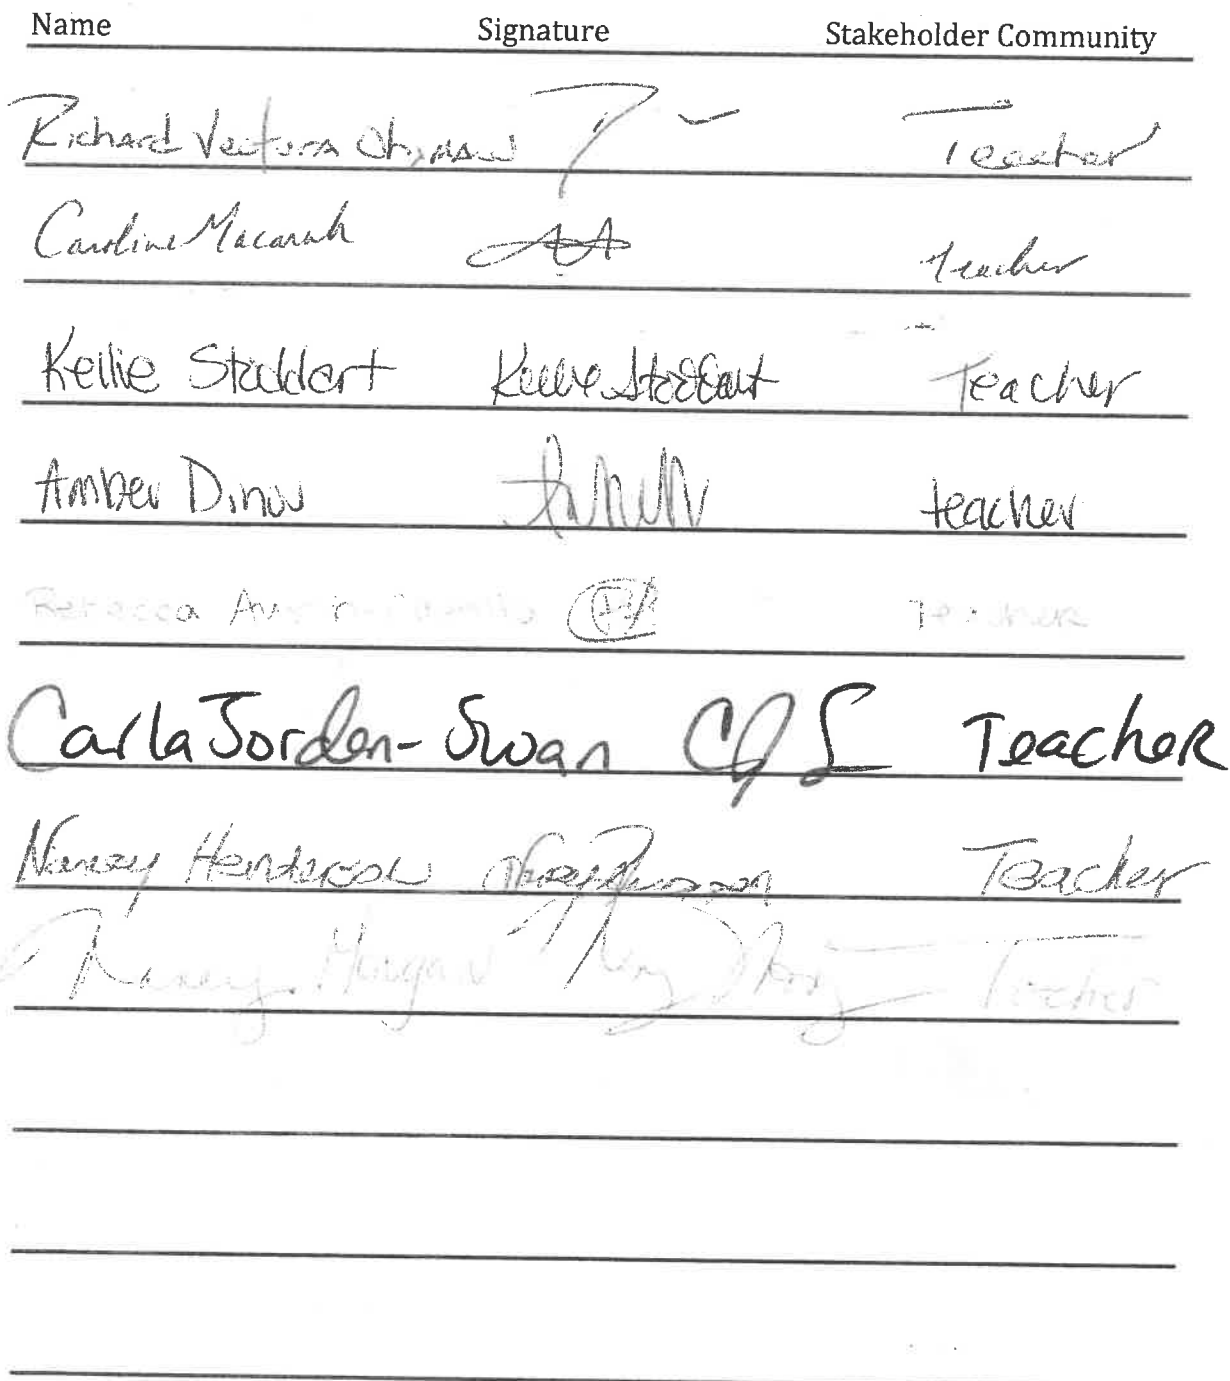 Name Signature Stakeholder Community
Richard Teacher
Caroline teacher
Kellie Stoddart Kellie Stoddart Teacher
Amber teacher
Rebecca Teacher
Carla Jorden-Swan CJS TeacheR
Nancy Henderson Teacher
Nancy Morgan Teacher